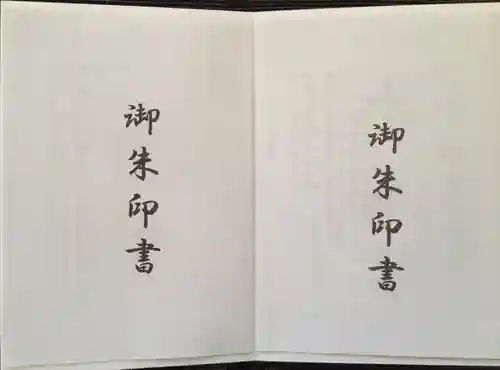 御朱印書
御朱印書